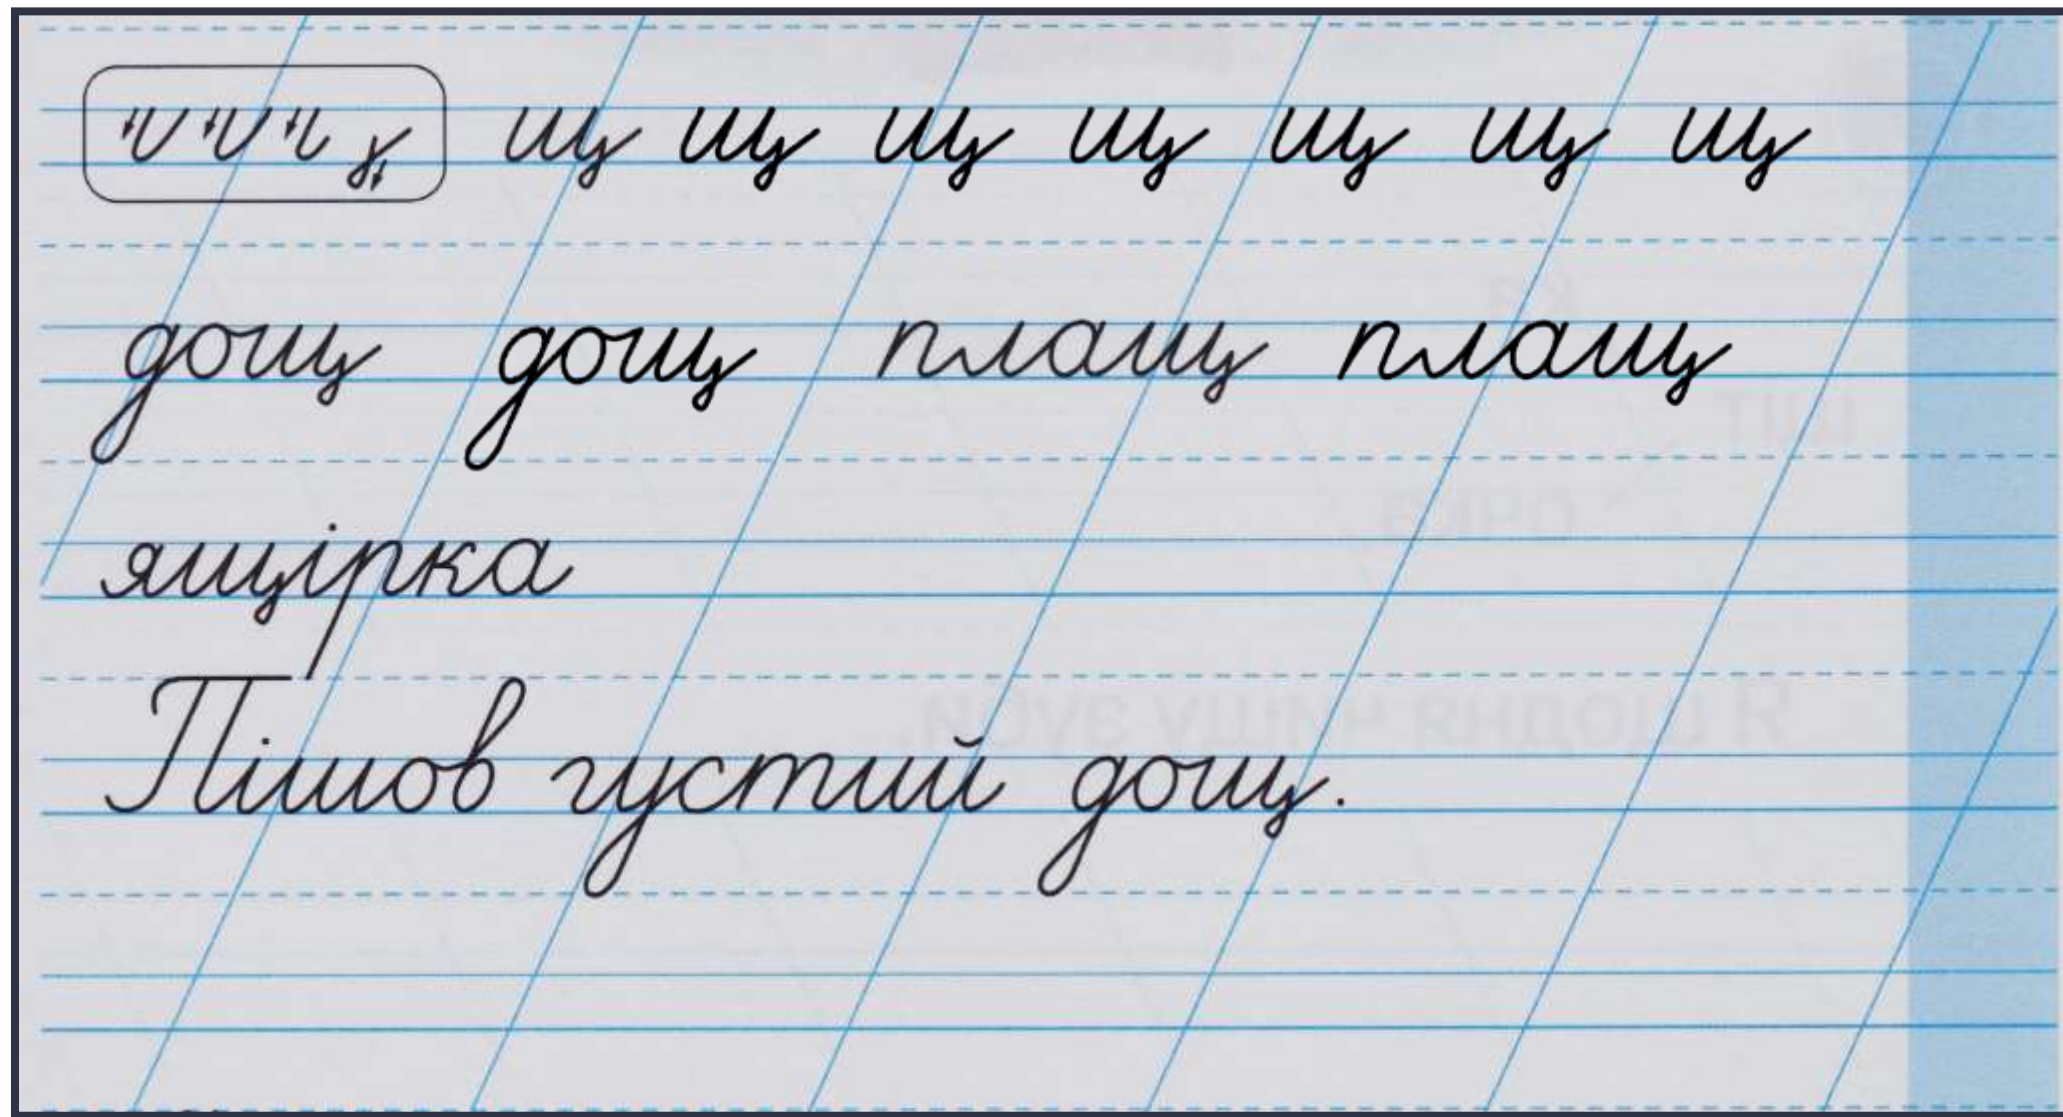 щ щ щ щ щ щ щ
дощ дощ плащ плащ
ящірка
Пішов густий дощ.